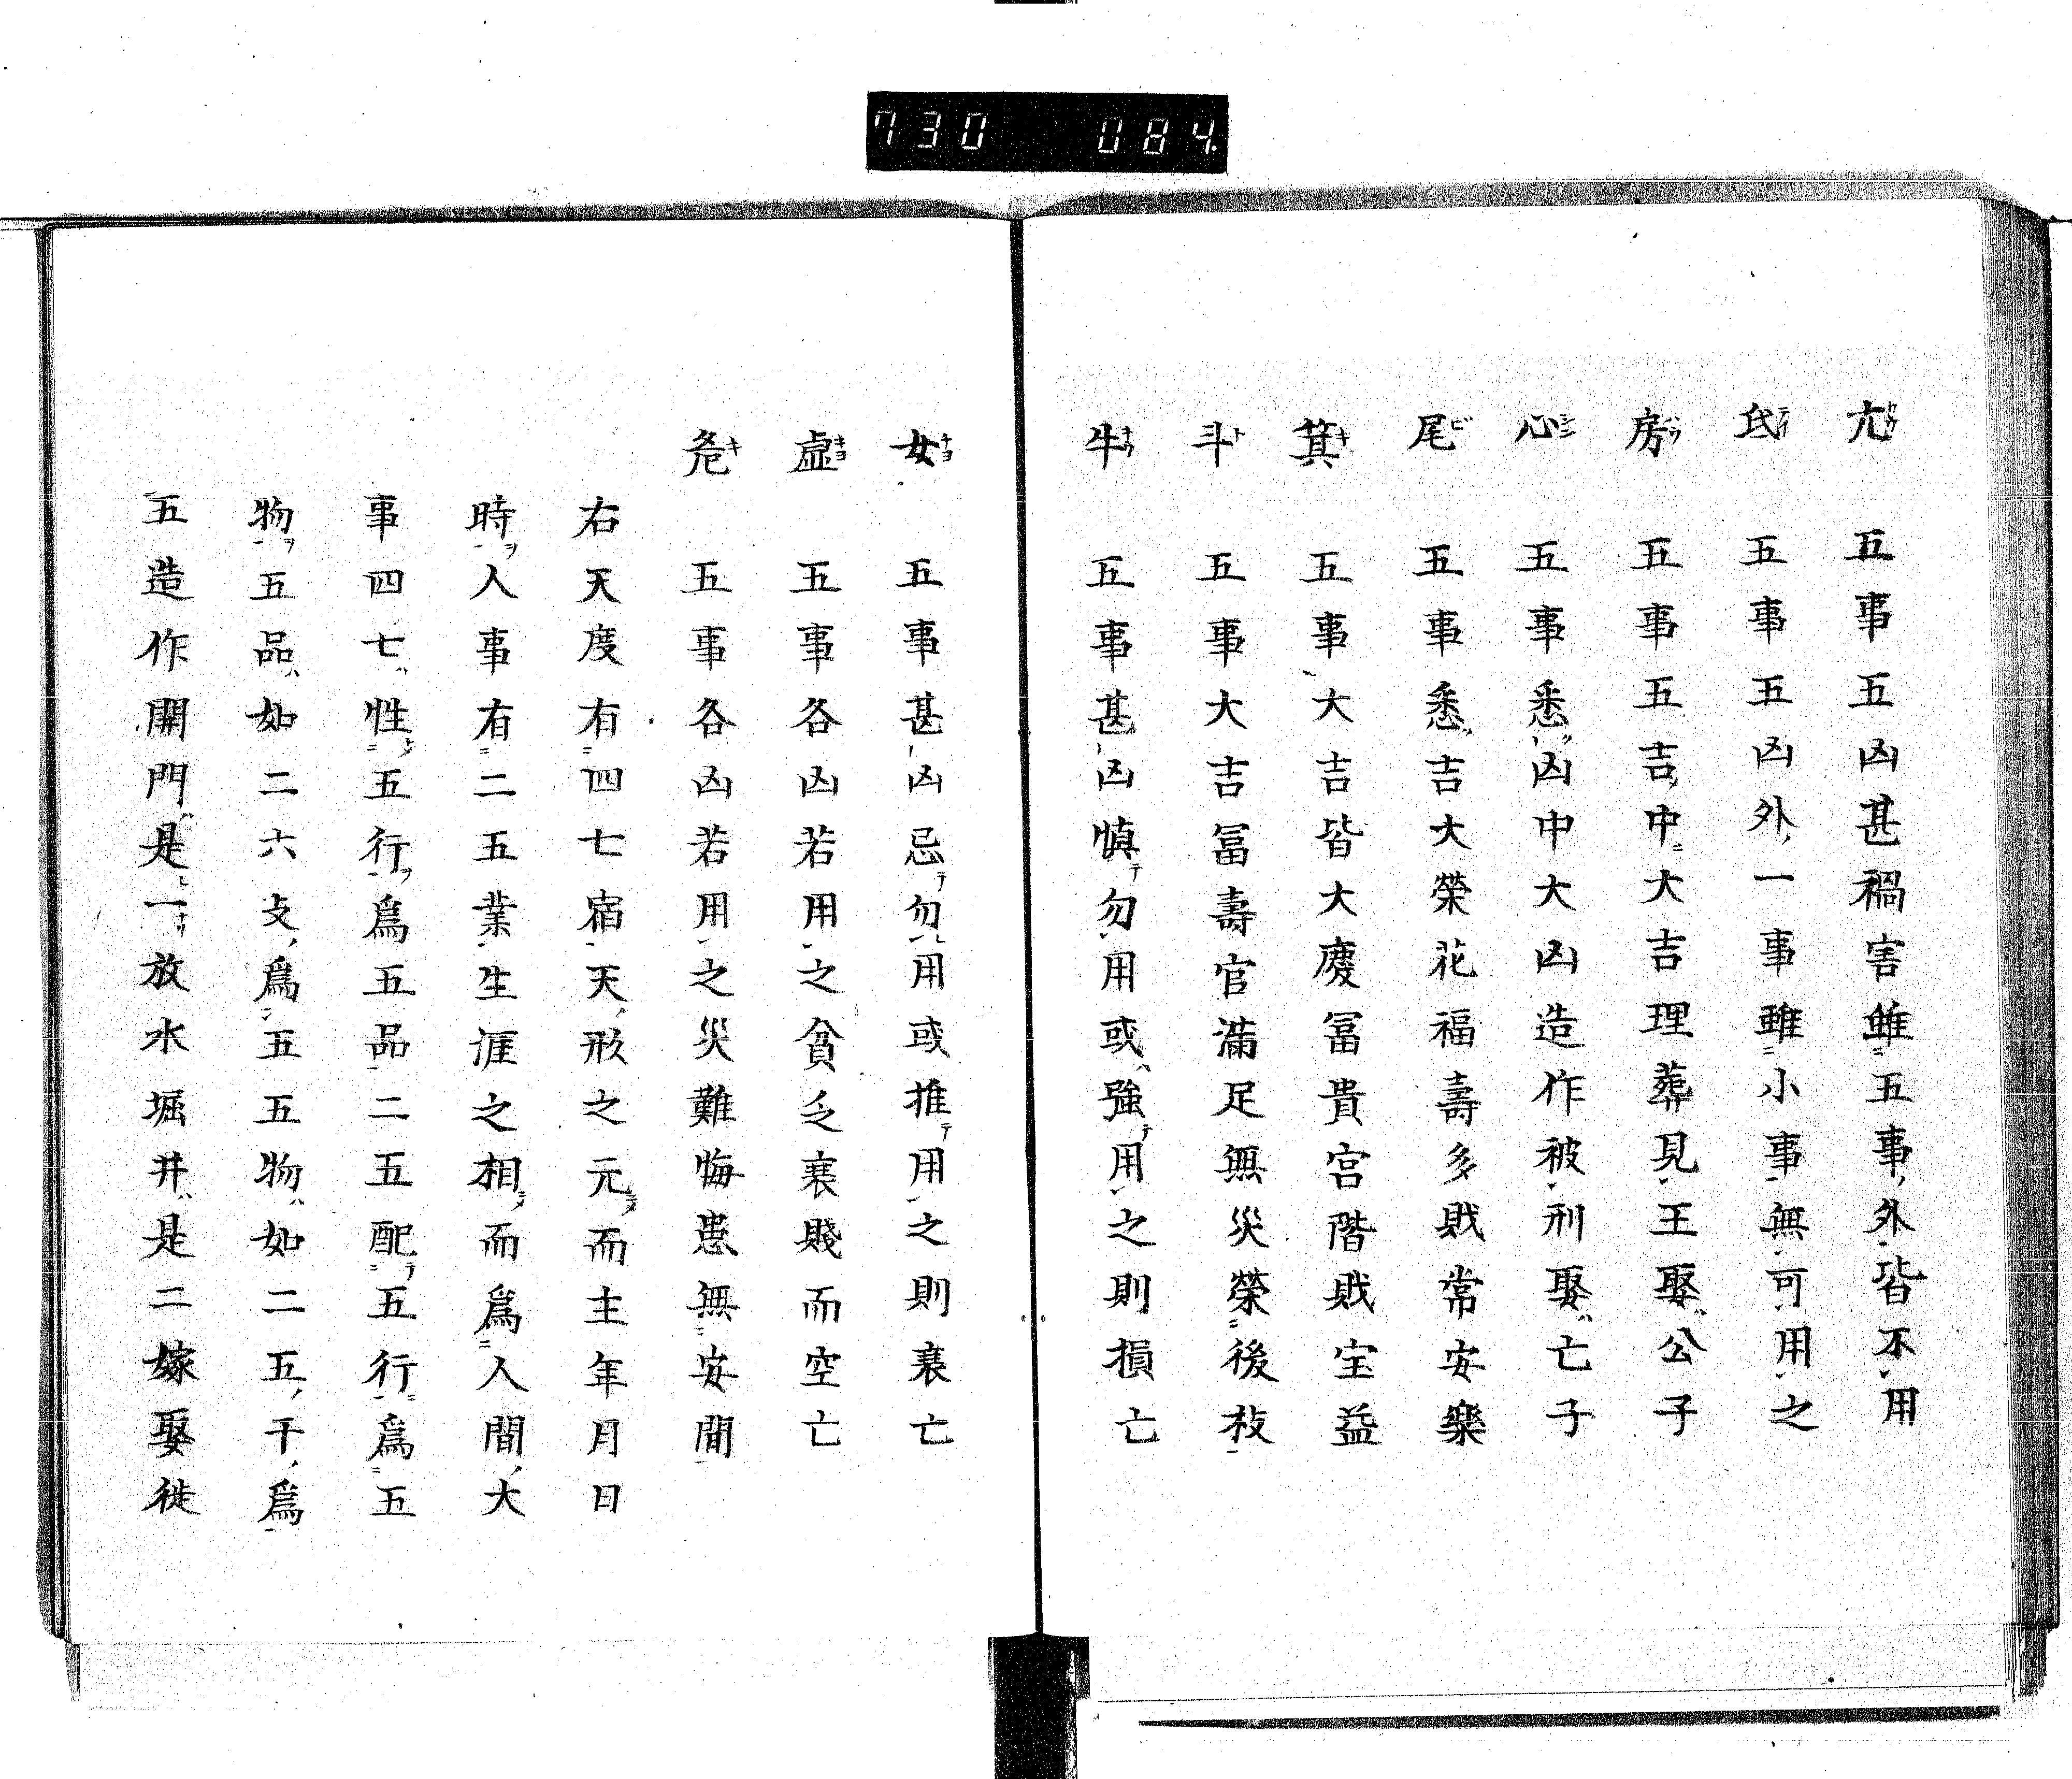 730 084
亢 五事五凶甚禍害雖五事外皆不用
氐 五事五凶外一事雖小事無可用之
房 五事五吉中大吉理葬見王娶公子
心 五事悉凶中大凶造作被刑娶亡子
尾 五事悉吉大榮花福壽多戝常安樂
箕 五事大吉皆大慶冨貴宮階戝宝益
斗 五事大吉冨壽官滿足無災榮後枝
牛 五事甚凶慎勿用或強用之則損亡
女 五事甚凶忌勿用或推用之則衰亡
虛 五事各凶若用之貧乏衰賤而空亡
危 五事各凶若用之災難悔患無安間
右天度有四七宿天形之元而主年月日
時人事有二五業生涯之相而爲人間大
事四七性五行爲五品二五配五行爲五
物五品如二六支爲五五物如二五干爲
五造作開門是一放水堀井是二嫁娶徙